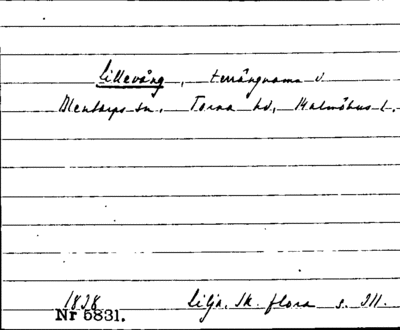 Lillevång, terrängnamn i
Blentarps sn. Torna hd, Malmöhus l.
1838 Lilja, Sk. flora s. 311.
Nr 5831.